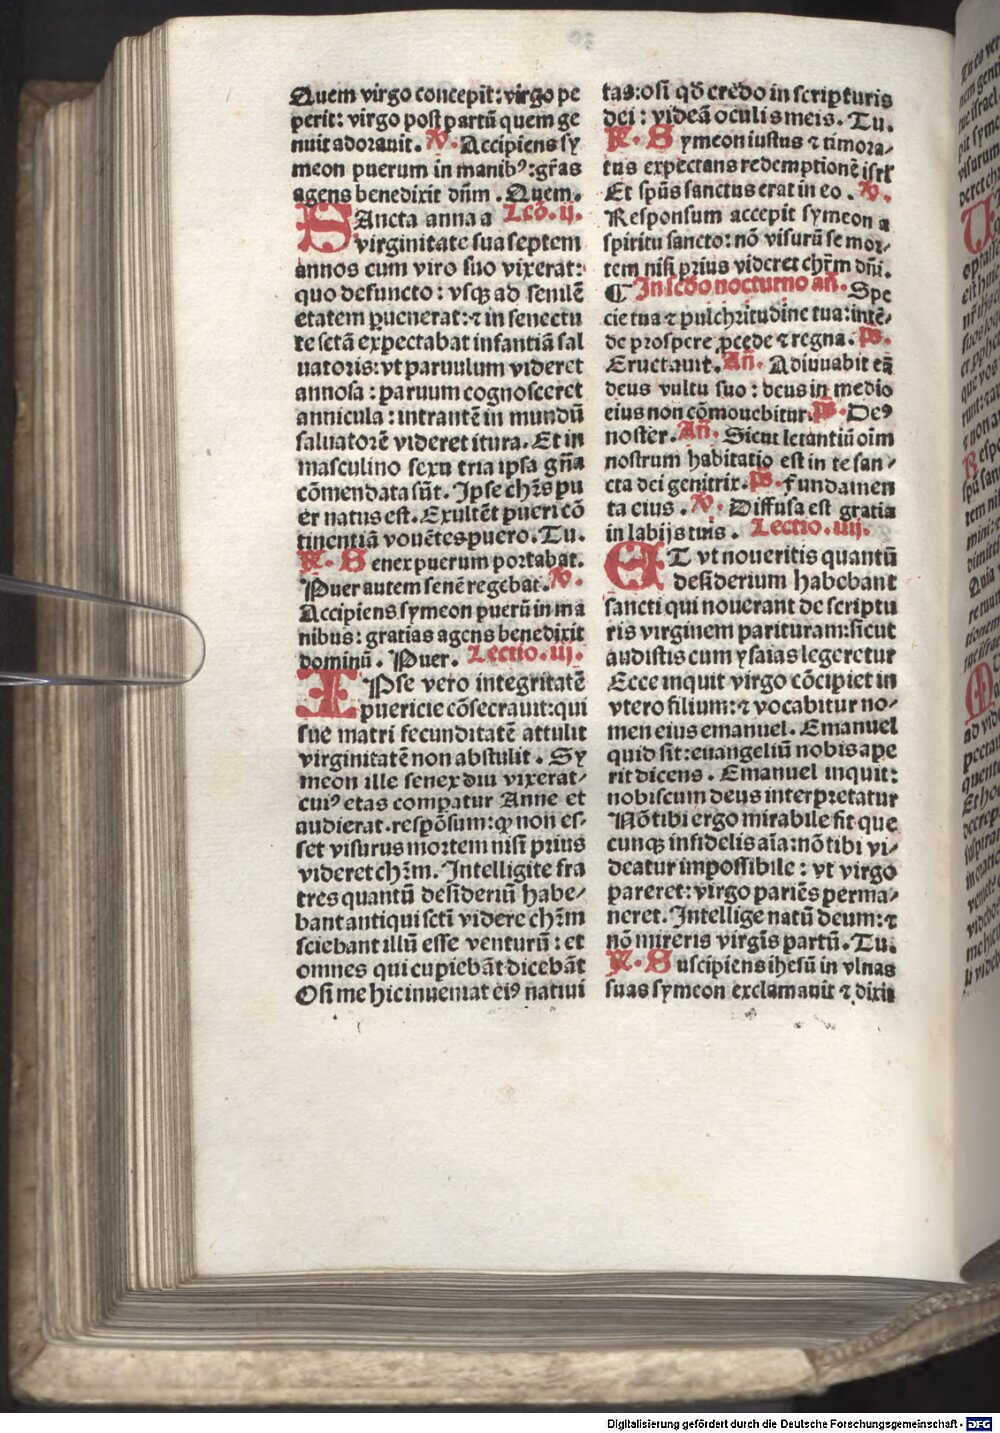 Quem virgo concepit: virgo pe
perit: virgo post partū quem ge
nuit adorauit. V. Accipiens sy
meon puerum in manibꝰ: gr̄as
agens benedixit dn̄m. Quem.
SAncta anna a Lcō. ij.
virginitate sua septem
annos cum viro suo vixerat:
quo defuncto: vsqꝫ ad senilē
etatem ꝑuenerat: ⁊ in senectu
te sctā expectabat infantiā sal
uatoris: vt paruulum videret
annosa: paruum cognosceret
annicula: intrantē in mundū
saluatorē videret itura. Et in
masculino sexu tria ipsa gn̄a
cōmendata sūt. Ipse chr̄s pu
er natus est. Exultēt pueri cō
tinentiā vouētes puero. Tu.
R. Senex puerum portabat.
Puer autem senē regebat. V.
Accipiens symeon puerū in ma
nibus: gratias agens benedixit
dominū. Puer. Lectio. iij.
IPse vero integritatē
puericie cōsecrauit: qui
sue matri fecunditatē attulit
virginitatē non abstulit. Sy
meon ille senex diu vixerat/
cuiꝰ etas comꝑatur Anne et
audierat. respōsum: ꝙ non es-
set visurus mortem nisi prius
videret chr̄m. Intelligite fra
tres quantū desideriū habe/
bant antiqui sctī videre chr̄m
sciebant illū esse venturū: et
omnes qui cupiebāt dicebāt
Osi me hic inueniat eiꝰ natiui
tas: osi qd̄ credo in scripturis
dei: videā oculis meis. Tu.
R. Symeon iustus ⁊ timora/
tus expectans redemptionē isrl
Et spūs sanctus erat in eo. V.
Responsum accepit symeon a
spiritu sancto: nō visurū se mor/
tem nisi prius videret chr̄m dn̄i.
¶ In scdo nocturno an̄. Spe
cie tua ⁊ pulchritudine tua: intē/
de prospere ꝓcede ⁊ regna. ps.
Eructauit. An̄. Adiuuabit eā
deus vultu suo: deus in medio
eius non cōmouebitur. ps. Deꝰ
noster. An̄. Sicut letantiū oīm
nostrum habitatio est in te san/
cta dei genitrix. ps. Fundamen
ta eius. V. Diffusa est gratia
in labijs tuis. Lectio. iiij.
ET vt noueritis quantū
desiderium habebant
sancti qui nouerant de scriptu
ris virginem parituram: sicut
audistis cum ysaias legeretur
Ecce inquit virgo cōcipiet in
vtero filium: ⁊ vocabitur no/
men eius emanuel. Emanuel
quid sit: euangeliū nobis ape
rit dicens. Emanuel inquit:
nobiscum deus interpretatur
Nō tibi ergo mirabile fit que
cunqꝫ infidelis aīa: nō tibi vi/
deatur impossibile: vt virgo
pareret: virgo pariēs perma/
neret. Intellige natū deum: ⁊
nō mireris virgīs partū. Tu.
R. Suscipiens ihesū in vlnas
suas symeon exclamauit ⁊ dixit
Digitalisierung gefördert durch die Deutsche Forschungsgemeinschaft - DFG